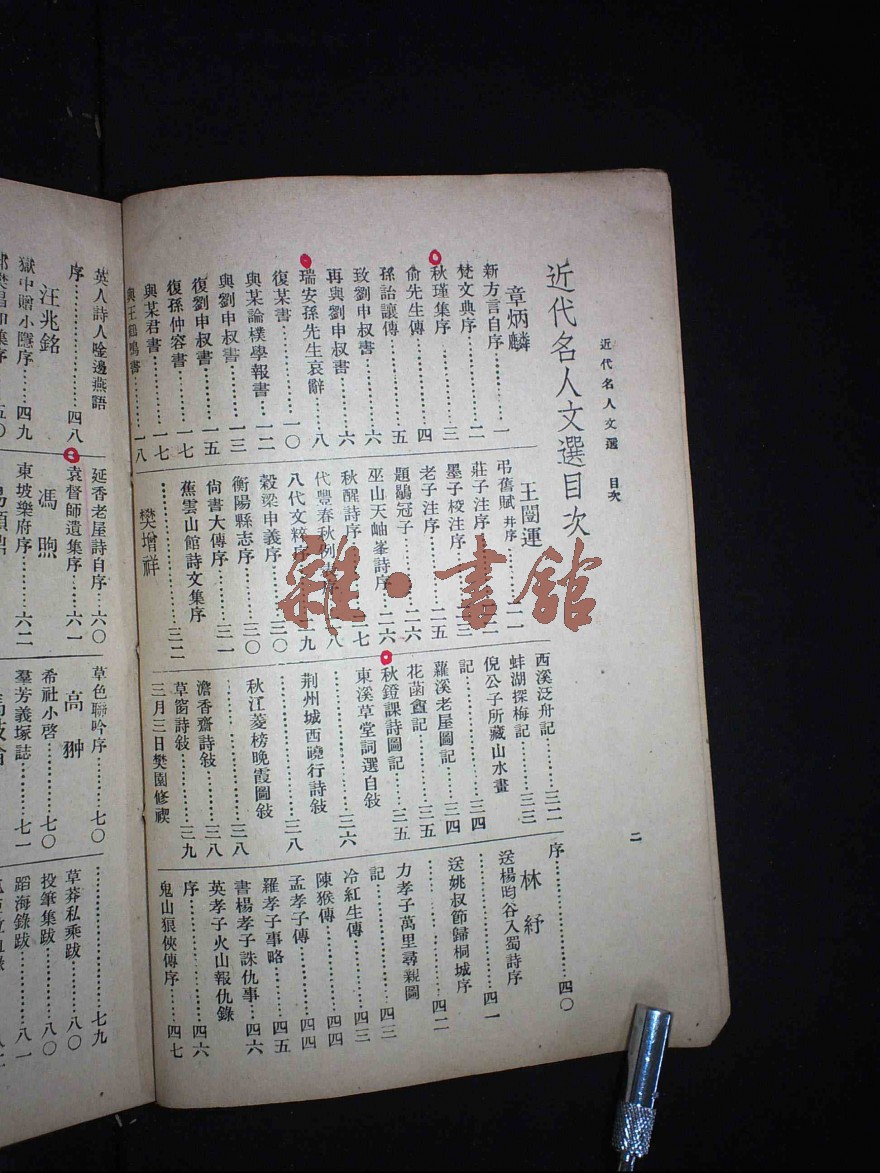 近代名人文選　目次
二
近代名人文選目次
章炳麟
新方言自序……一
梵文典序……二
秋瑾集序……三
俞先生傳……四
孫詒讓傳……五
致劉申叔書……六
再與劉申叔書……六
瑞安孫先生哀辭……八
復某書……一〇
與某論樸學報書……一二
與劉申叔書……一三
復劉申叔書……一五
復孫仲容書……一七
與某君書……一七
與王鶴鳴書……一八
王闓運
弔舊賦 并序……二一
莊子注序……二二
墨子校注序……二三
老子注序……二五
題鶡冠子……二六
巫山天岫峯詩序……二六
秋醒詩序……二七
代豐春秋例表序……二八
八代文粹序……二九
穀梁申義序……三〇
衡陽縣志序……三〇
尙書大傳序……三一
蕉雲山館詩文集序
……三二
樊增祥
西溪泛舟記……三二
蚌湖探梅記……三三
倪公子所藏山水畫
記……三四
蘿溪老屋圖記……三四
花菡盦記……三五
秋鐙課詩圖記……三五
東溪草堂詞選自敍
……三六
荆州城西曉行詩敍
……三八
秋江菱榜晚霞圖敍
……三八
澹香齋詩敍……三八
草窗詩敍……三九
三月三日樊園修禊
序……四〇
林紓
送楊昀谷入蜀詩序
……四一
送姚叔節歸桐城序
……四二
力孝子萬里尋親圖
記……四三
冷紅生傳……四三
陳猴傳……四四
孟孝子傳……四四
羅孝子事略……四五
書楊孝子誅仇事…四六
英孝子火山報仇錄
序……四六
鬼山狼俠傳序……四七
英人詩人唫邊燕語
序……四八
汪兆銘
獄中贈小隱序……四九
延香老屋詩自序……六〇
袁督師遺集序……六一
馮煦
東坡樂府序……六二
草色聯吟序……七〇
高翀
希社小啓……七〇
羣芳義塚誌……七一
……七九
草莽私乘跋……八〇
投筆集跋……八〇
蹈海錄跋……八一
雜·書館